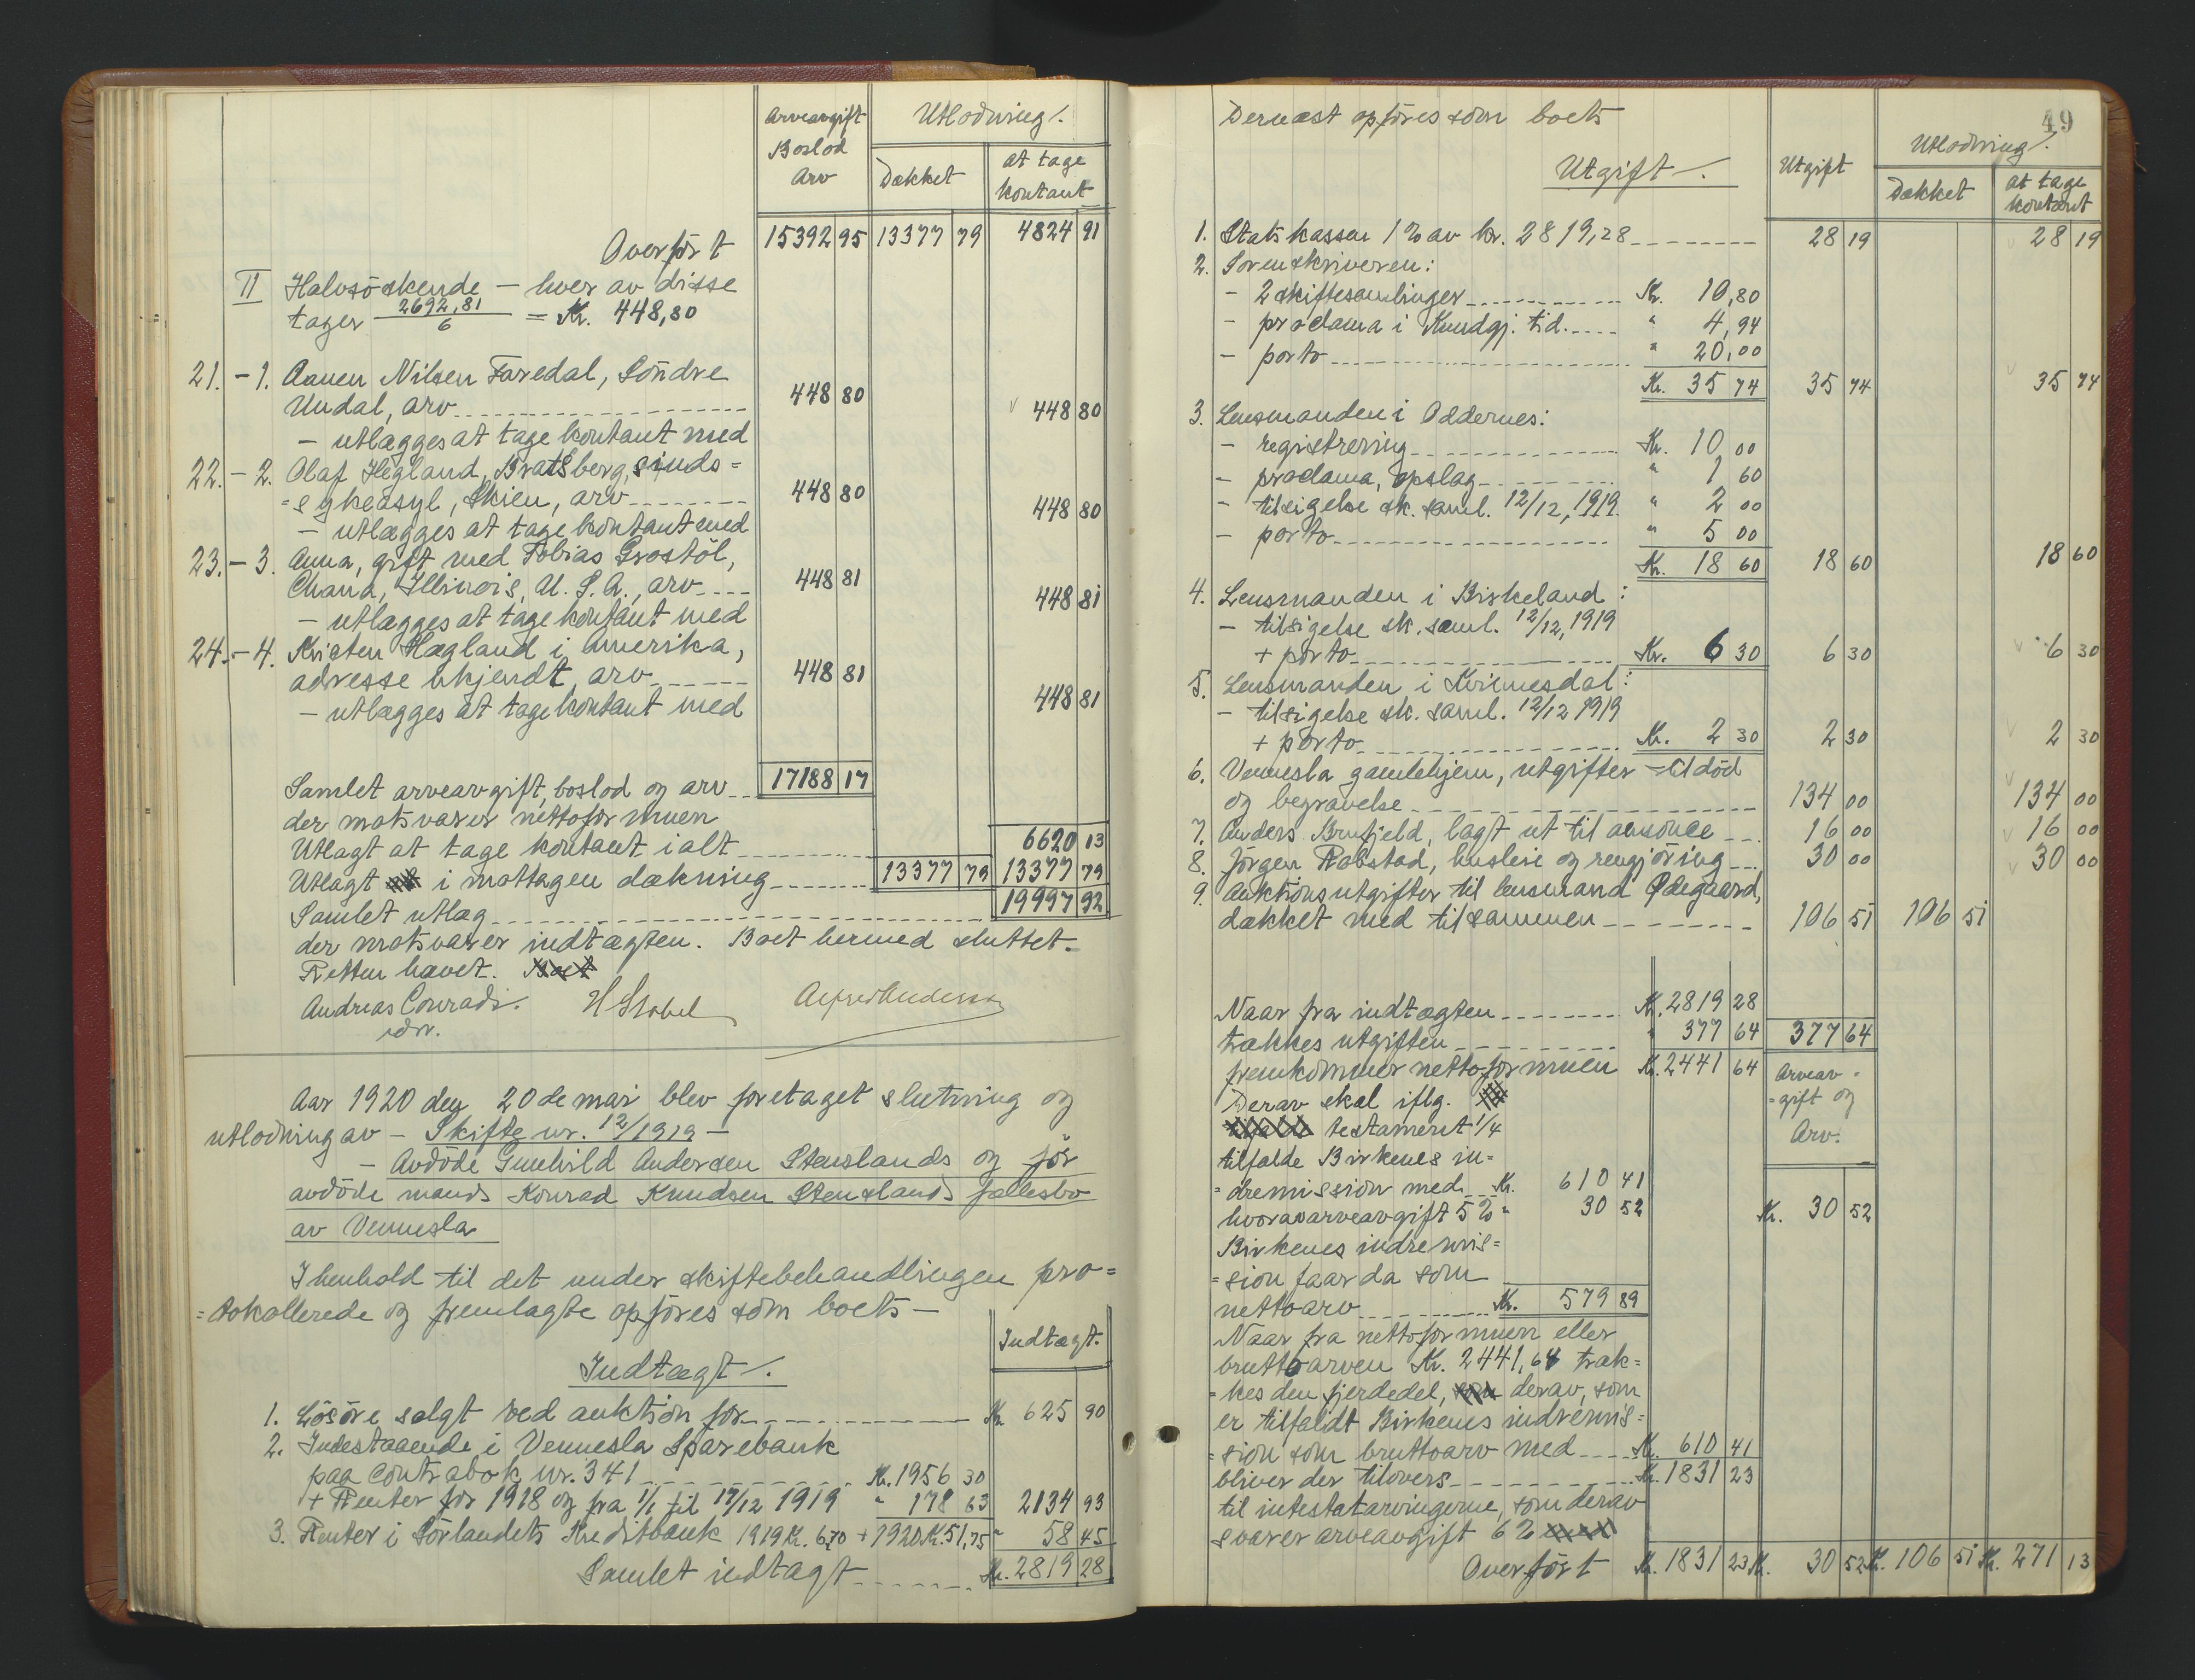 Arveavgift
Boslod
Arv
Utlodning ⁄.
Dækket
At tage
kontant
Overført 15392 95 13377 79 4824 91
II Halvsöskende – hver av disse
tager 2692,81 / 6 = Kr. 448,80
21. – 1. Aanen Nilsen Faredal, Söndre
Undal, arv 448 80
– utlægges at tage kontant med 448 80
22. – 2. Olaf Hegland, Bratsberg, sinds=
=sykeasyl, Skien, arv 448 80
– utlægges at tage kontant med 448 80
23. – 3. Anna, gift med Tobias Grostöl,
Chana, Illinois, U. S. A., arv 448 81
– utlægges at tage kontant med 448 81
24. – 4. Kristen Hægland i Amerika,
adresse ukjendt, arv 448 81
– utlægges at tage kontant med 448 81
Samlet arveavgift, boslod og arv 17188 17
der motsvarer nettoformuen
Utlagt at tage kontant ialt 6620 13
Utlagt i mottagen dækning 13377 79 13377 79
Samlet utlæg 19997 92
der motsvarer indtægten. Boet hermed sluttet.
Retten hævet. Boet
Andreas Conradi. H Stabel Alfred Andersen
Aar 1920 den 20de mai blev foretaget slutning og
utlodning av – Skifte nr. 12/1919 –
– Avdöde Gunhild Andersen Stenslands og för
avdöde mands Konrad Knudsen Stenslands fællesbo
av Vennesla
I henhold til det under skiftebehandlingen pro=
=tokollerede og fremlagte opføres som boets –
Indtægt.
Indtægt ⁄.
1. Lösöre solgt ved auktion for Kr. 625 90
2. Indestaaende i Vennesla Sparebank
paa Contrabok nr. 341 Kr. 1956 30
+ Renter for 1918 og fra 1/1 til 17/12 1919 " 178 63 2134 93
3. Renter i Sörlandets Kreditbank 1919 Kr. 6,70 + 1920 Kr. 51,75 " 58 45
Samlet indtægt Kr. 2819 28
49
Dernæst opføres som boets
Utgift ⁄.
Utgift
Utlodning ⁄.
Dækket
At tage
kontant
1. Statskassen 1% av kr. 2819,28 28 19 28 19
2. Sorenskriveren:
– 2 skiftesamlinger Kr. 10,80
– proclama i Kundgj. tid. " 4,94
– porto " 20,00
Kr. 35 74 35 74 35 74
3. Lensmanden i Oddernes:
– registrering Kr. 10 00
– proclama, opslag " 1 60
– tilsigelse sk. saml. 12/12, 1919 " 2 00
– porto " 5 00
Kr. 18 60 18 60 18 60
4. Lensmanden i Birkeland:
– tilsigelse sk. saml. 12/12, 1919
+ porto Kr. 6 30 6 30 6 30
5. Lensmanden i Kvinnesdal:
– tilsigelse sk. saml. 12/12 1919
+ porto Kr. 2 30 2 30 2 30
6. Vennesla gamlehjem, utgifter til död
og begravelse 134 00 134 00
7. Anders Brufjeld, lagt ut til annonce 16 00 16 00
8. Jörgen Robstad, husleie og rengjöring 30 00 30 00
9. Auktionsutgifter til lensmand Ødegaard,
dækket med tilsammen 106 51 106 51
Naar fra indtægten Kr. 2819 28
trækkes utgiften " 377 64 377 64
fremkommer nettoformuen Kr. 2441 64
Arveav-
=gift og
Arv.
Derav skal iflg.
testament 1/4
tilfalde Birkenes in=
=dremission med Kr. 610 41
hvorav arveavgift 5% " 30 52 Kr. 30 52
Birkenes indremis=
=sion faar da som
nettoarv Kr. 579 89
Naar fra nettoformuen eller
bruttoarven Kr. 2441,64 træk=
=kes den fjerdedel, som derav, som
er tilfaldt Birkenes indremis=
=sion som bruttoarv med Kr. 610 41
bliver der tilovers Kr. 1831 23
til intestatarvingerne, som derav
svarer arveavgift 6%
Overført Kr. 1831 23 Kr. 30 52 Kr. 106 51 Kr. 271 13